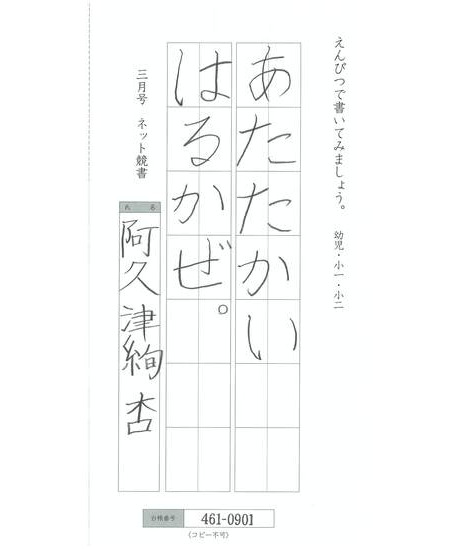 えんぴつで書いてみましょう。　幼児・小一・小二
あたたかい
はるかぜ。
三月号　ネット競書
氏　名
阿久津絢杏
台帳番号　461-0901
（コピー不可）